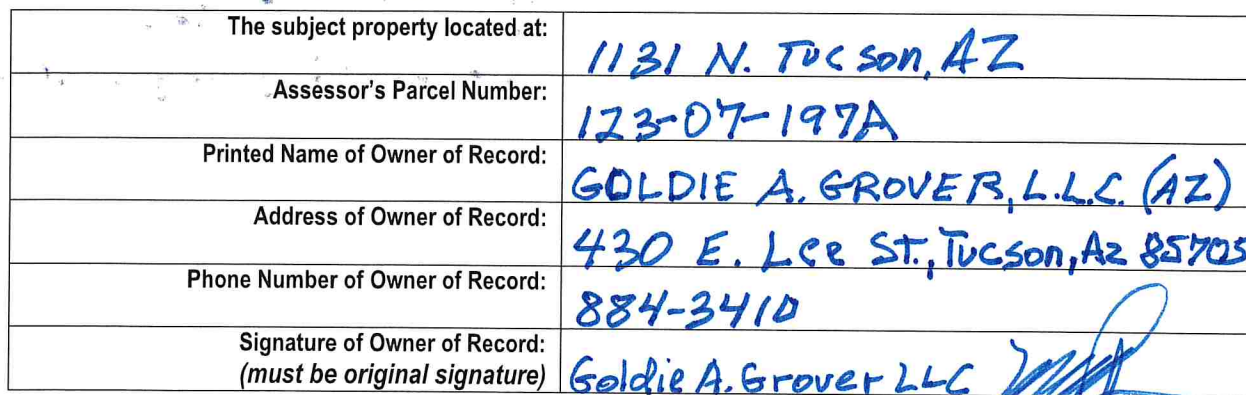 The subject property located at: 1131 N. Tucson, AZ
Assessor's Parcel Number: 123-07-197A
Printed Name of Owner of Record: GOLDIE A. GROVER, L.L.C. (AZ)
Address of Owner of Record: 430 E. Lee ST., Tucson, Az 85705
Phone Number of Owner of Record: 884-3410
Signature of Owner of Record:
(must be original signature) Goldie A. Grover LLC